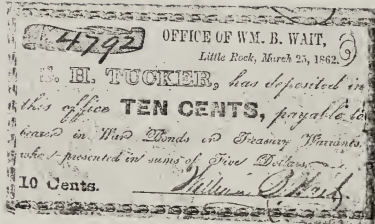 4792
OFFICE OF WM. B. WAIT,
Little Rock, March 25, 1862.
S. H. TUCKER, has deposited in
this office TEN CENTS, payable to
bearer in War Bonds or Treasury Warrants,
when presented in sums of Five Dollars.
10 Cents.
William B. Wait